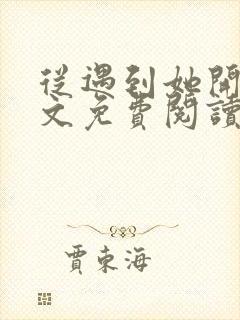 從遇到她開
文免費閱讀
賈東海